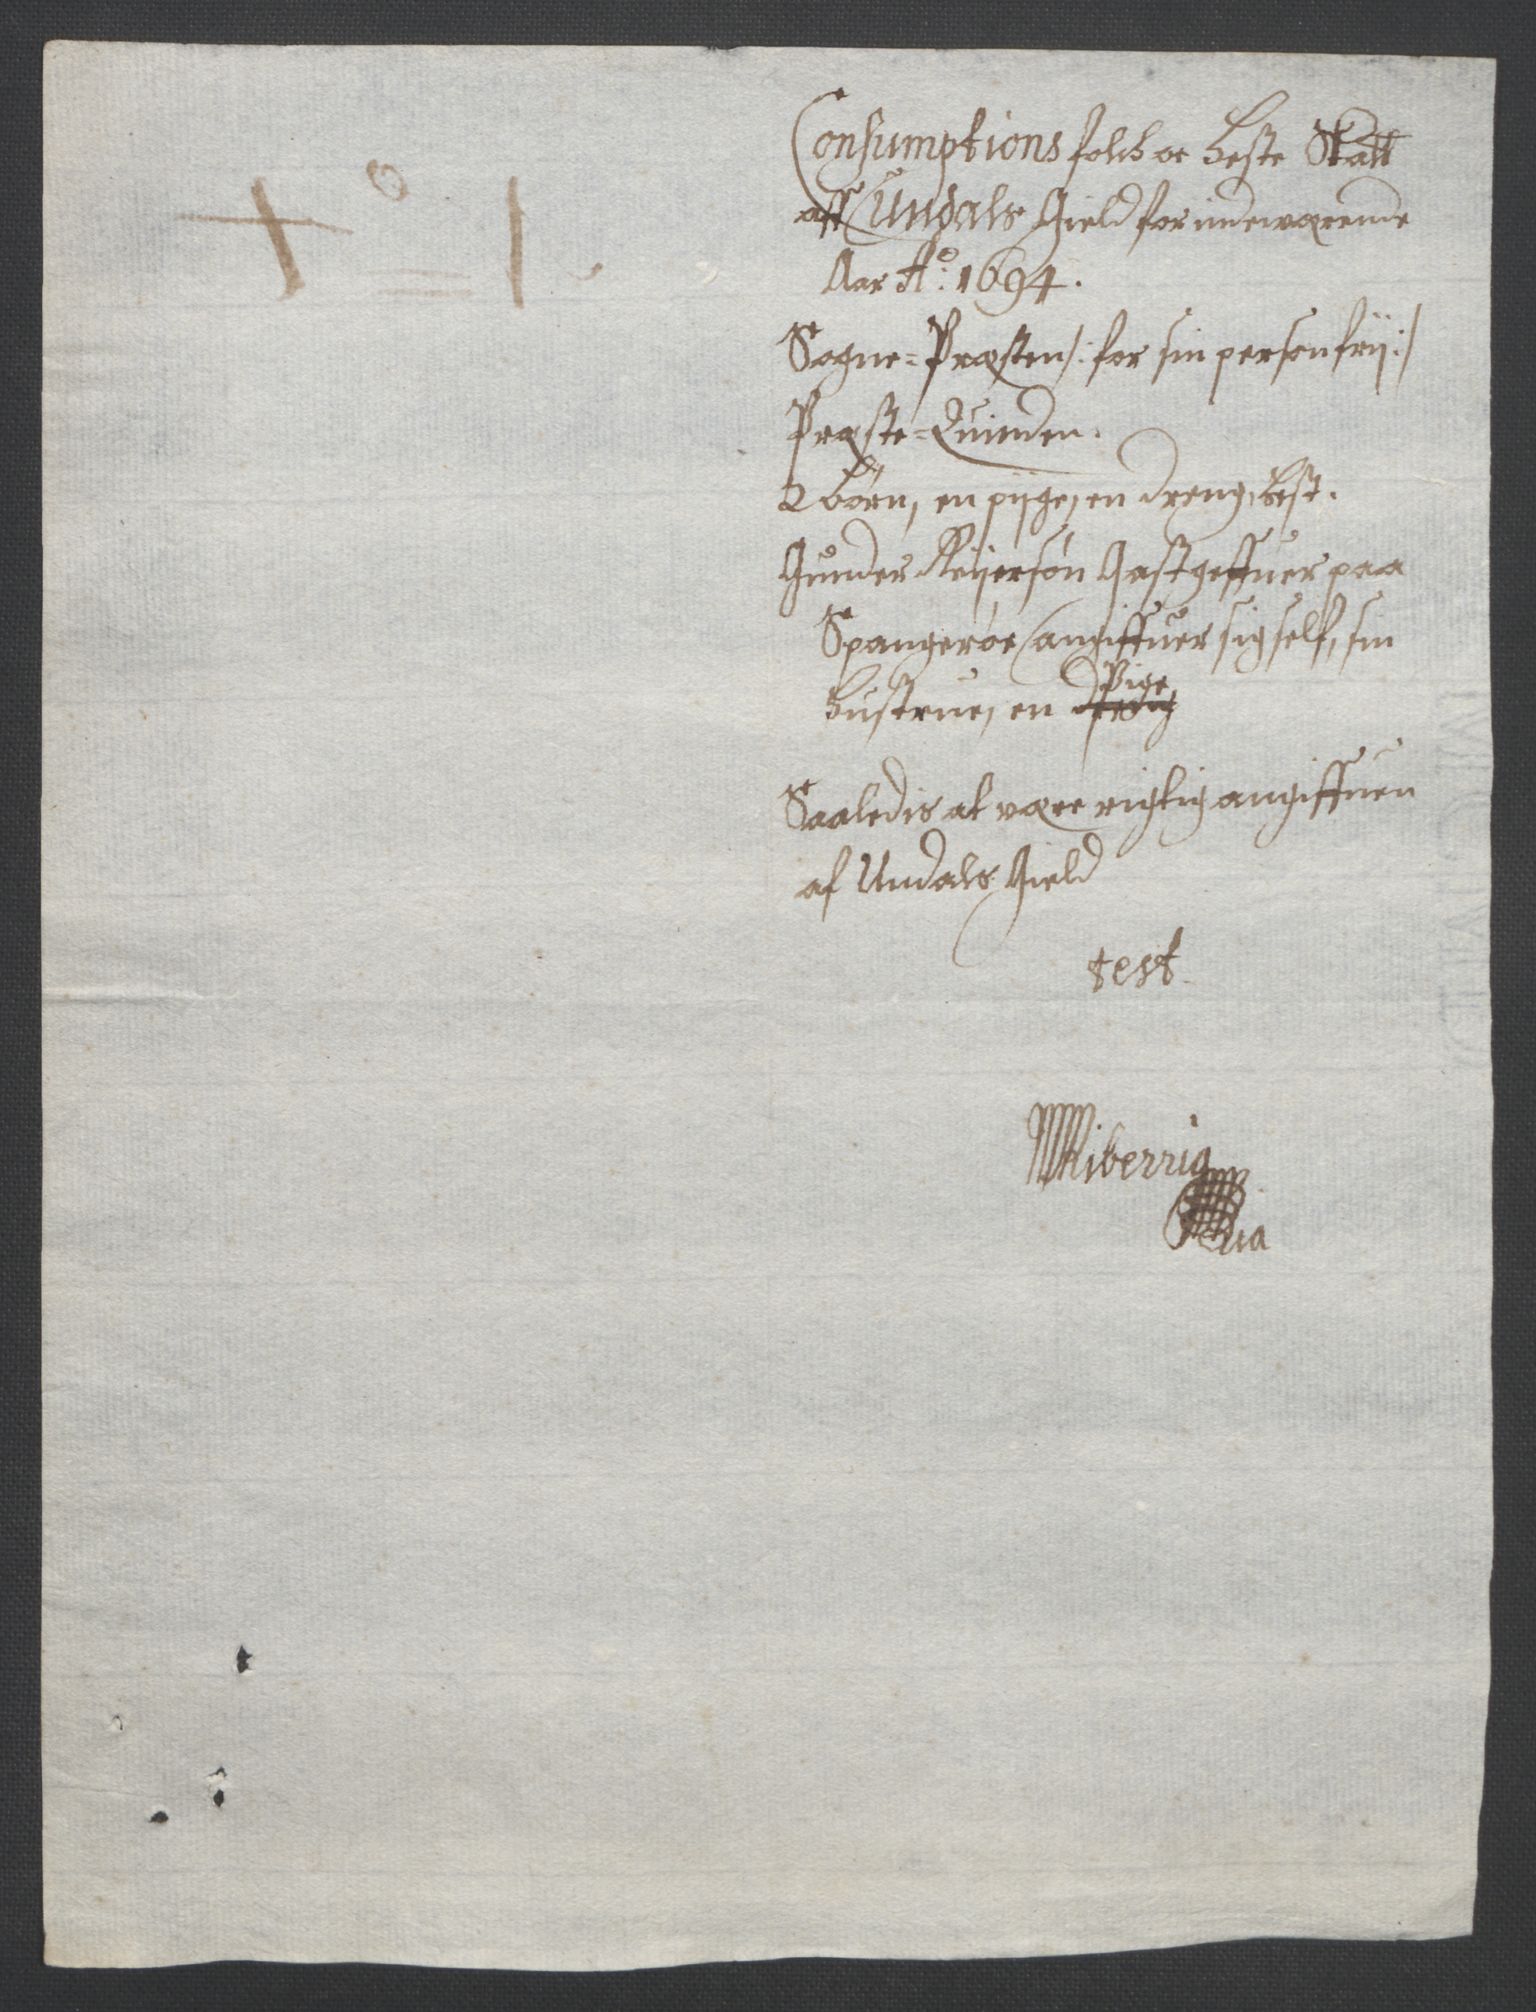 Consumptions folck oc heste Skatt
aff Undals Gield for indewærende
Aar Ao: 1694.
Sogne=Præsten /: for sin person frij :/
Præste=Quinden.
2 børn, en pijge, en dreng, hest.
Gunder Reijersøn Gastgeffuer paa
Spangerøe angiffuer sig self, sin
hustrue, en Pige
Saaledis at være rigtig angiffuen
af Undals Gield
test